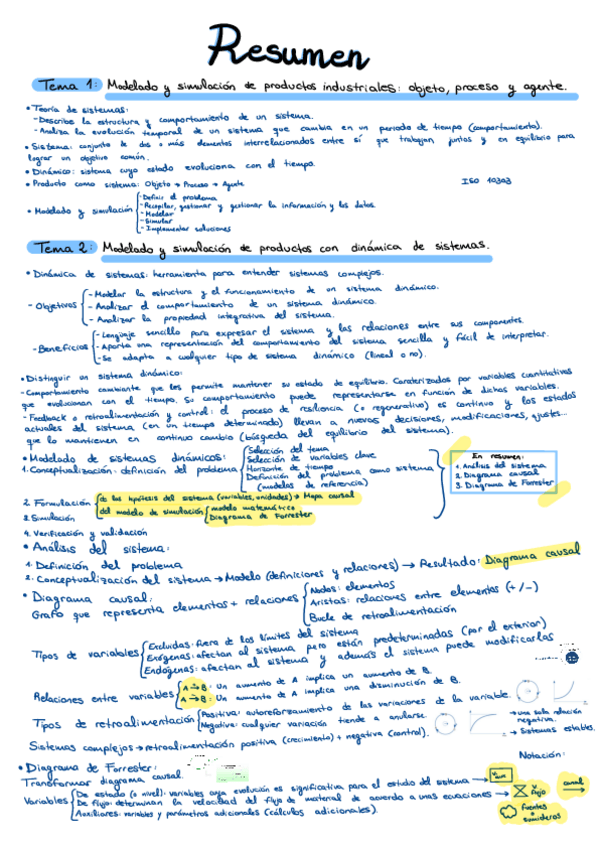 Resumen
Tema 1: Modelado y simulación de productos industriales: objeto, proceso y agente.
• Teoría de sistemas:
- Describe la estructura y comportamiento de un sistema.
- Analiza la evolución temporal de un sistema que cambia en un periodo de tiempo (comportamiento).
• Sistema: conjunto de dos o más elementos interrelacionados entre sí que trabajan juntos y en equilibrio para
lograr un objetivo común.
• Dinámico: sistema cuyo estado evoluciona con el tiempo.
• Producto como sistema: Objeto → Proceso → Agente
ISO 10303
• Modelado y simulación
- Definir el problema
- Recopilar, gestionar y gestionar la información y los datos.
- Modelar
- Simular
- Implementar soluciones
Tema 2: Modelado y simulación de productos con dinámica de sistemas.
• Dinámica de sistemas: herramienta para entender sistemas complejos.
- Objetivos
- Modelar la estructura y el funcionamiento de un sistema dinámico.
- Analizar el comportamiento de un sistema dinámico.
- Analizar la propiedad integrativa del sistema.
- Beneficios
- Lenguaje sencillo para expresar el sistema y las relaciones entre sus componentes.
- Aporta una representación del comportamiento del sistema sencilla y fácil de interpretar.
- Se adapta a cualquier tipo de sistema dinámico (lineal o no).
• Distinguir un sistema dinámico:
- Comportamiento cambiante que les permite mantener su estado de equilibrio. Caraterizados por variables cuantitativas
que evolucionan con el tiempo. Su comportamiento puede representarse en función de dichas variables.
- Feedback o retroalimentación y control: el proceso de resiliencia (o regenerativo) es continuo y los estados
actuales del sistema (en un tiempo determinado) llevan a nuevas decisiones, modificaciones, ajustes...
que lo mantienen en continuo cambio (búsqueda del equilibrio del sistema).
• Modelado de sistemas dinámicos:
1. Conceptualización: definición del problema
Selección del tema
Selección de variables clave
Horizonte de tiempo
Definición del problema como sistema
(modelos de referencia)
En resumen:
1. Análisis del sistema
2. Diagrama causal
3. Diagrama de Forrester
2. Formulación
de las hipótesis del sistema (variables, unidades) → Mapa causal
del modelo de simulación
modelo matemático
Diagrama de Forrester
3. Simulación
4. Verificación y validación
• Análisis del sistema:
1. Definición del problema
2. Conceptualización del sistema → Modelo (definiciones y relaciones) → Resultado: Diagrama causal
• Diagrama causal:
Grafo que representa elementos + relaciones
Nodos: elementos
Aristas: relaciones entre elementos (+/-)
Bucle de retroalimentación
Tipos de variables
Excluidas: fuera de los límites del sistema
Exógenas: afectan al sistema pero están predeterminadas (por el exterior)
Endógenas: afectan al sistema y además el sistema puede modificarlas
Relaciones entre variables
A → B: Un aumento de A implica un aumento de B.
A → B: Un aumento de A implica una disminución de B.
Tipos de retroalimentación
Positiva: autoreforzamiento de las variaciones de la variable.
Negativa: cualquier variación tiende a anularse.
→ una sola relación
negativa.
→ Sistemas estables.
Sistemas complejos → retroalimentación positiva (crecimiento) + negativa (control).
Notación:
• Diagrama de Forrester:
Transformar diagrama causal.
Variables
De estado (o nivel): variables cuya evolución es significativa para el estudio del sistema →
De flujo: determinan la velocidad del flujo de material de acuerdo a unas ecuaciones →
V. flujo
canal
Auxiliares: variables y parámetros adicionales (cálculos adicionales).
fuentes
o
sumideros